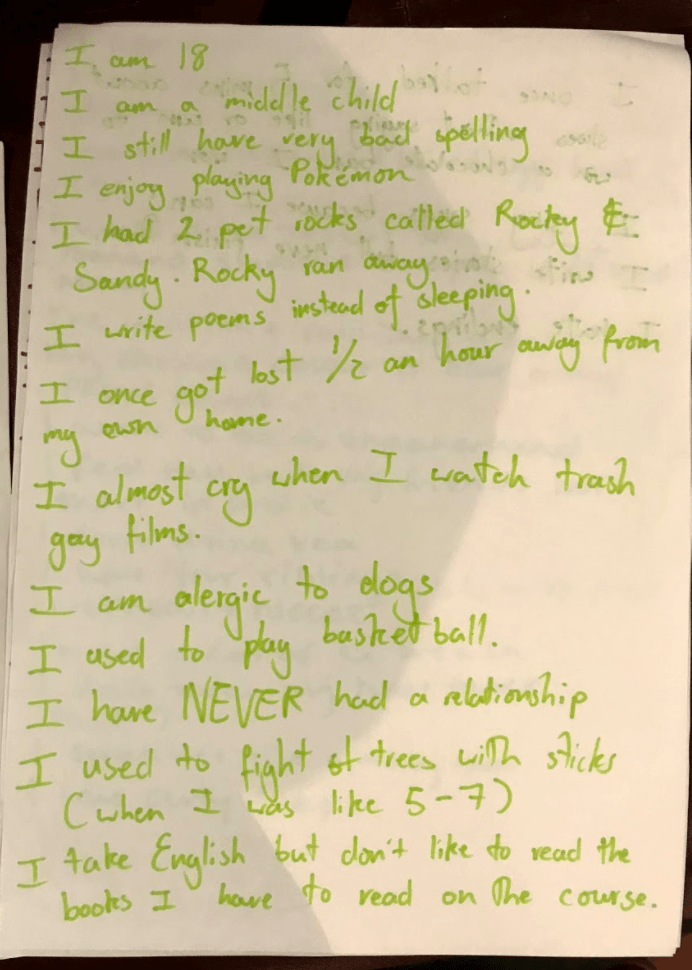 I am 18
I am a middle child
I still have very bad spelling
I enjoy playing Pokémon
I had 2 pet rocks called Rocky &
Sandy. Rocky ran away.
I write poems instead of sleeping.
I once got lost 1/2 an hour away from
my own home.
I almost cry when I watch trash
gay films.
I am alergic to dogs
I used to play basketball.
I have NEVER had a relationship
I used to fight of trees with sticks
(when I was like 5-7)
I take English but don't like to read the
books I have to read on the course.